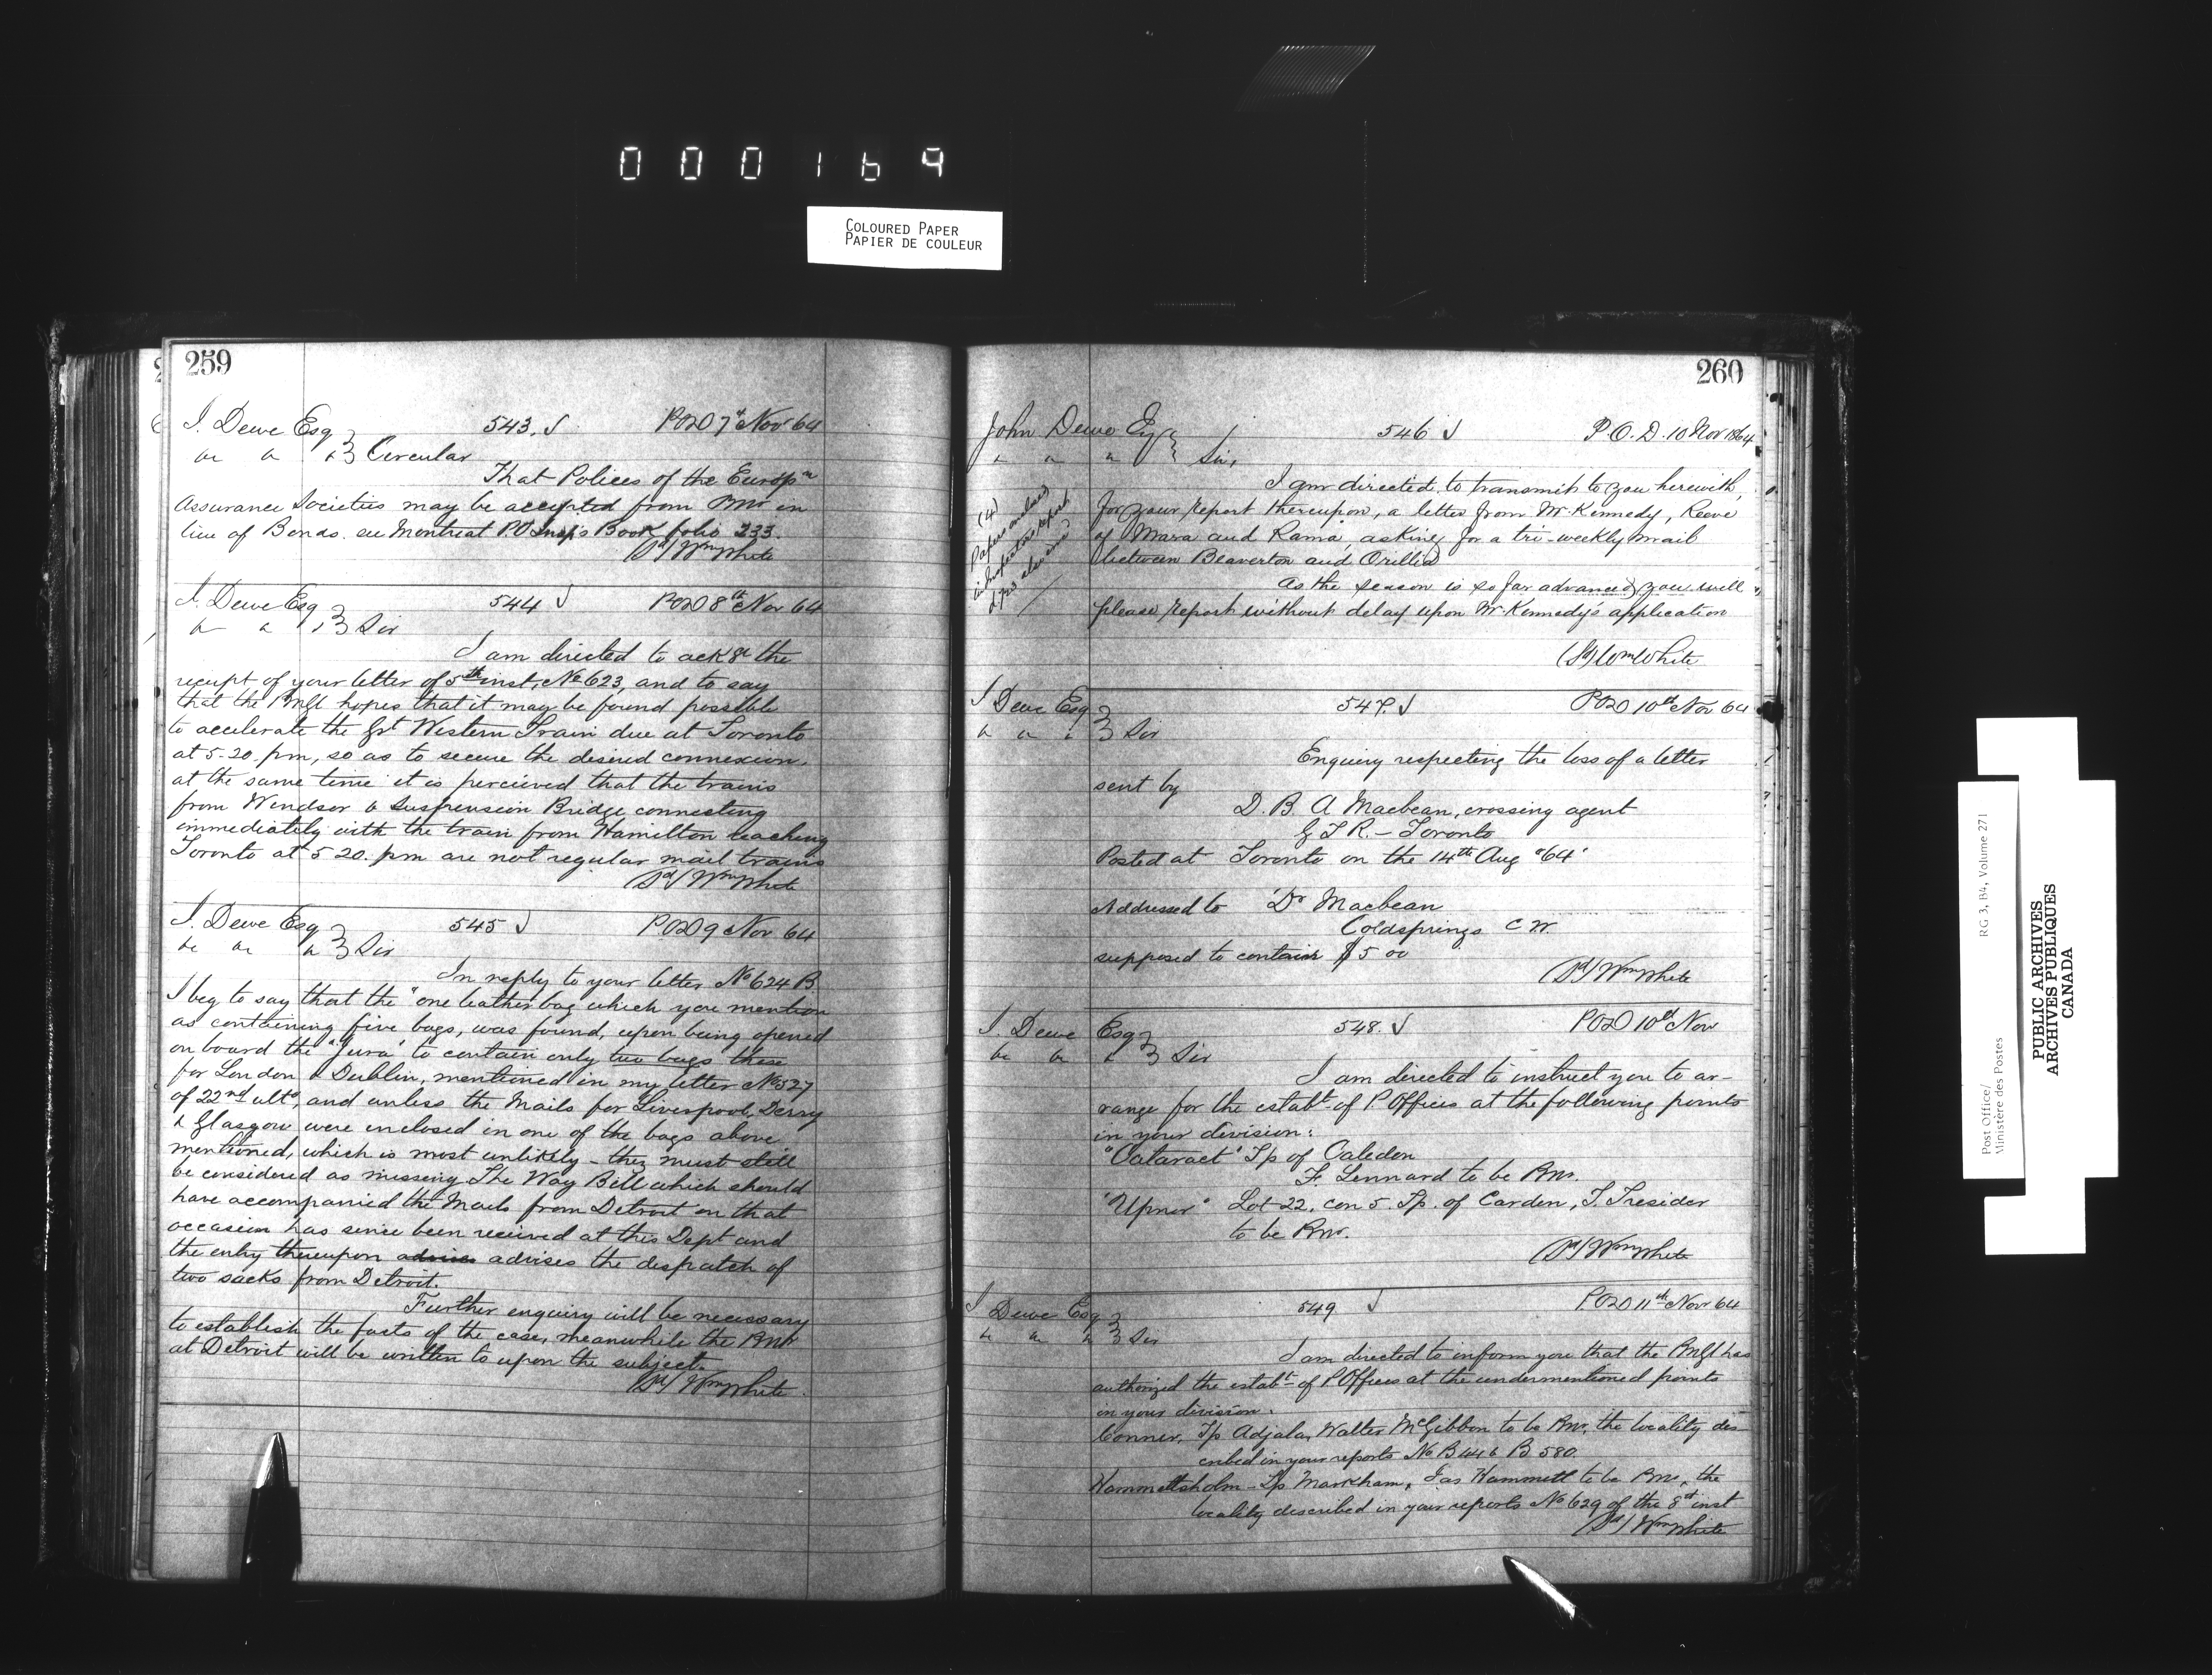 000169
COLOURED PAPER
PAPIER DE COULEUR
259
J. Dewe Esq 543. J POD 7th Nov 64
&c &c &c } Circular
That Polices of the Europn
Assurance Societies may be accepted from Pmr in
lieu of Bonds. see Montreal P.O Insp's Book folio 233.
(Sd) Wm White
J. Dewe Esq 544 J POD 8th Nov 64
&c &c &c } Sir
I am directed to ackge the
receipt of your letter of 5th inst, No 623, and to say
that the PMGl hopes that it may be found possible
to accelerate the Gt Western Train due at Toronto
at 5-20. pm, so as to secure the desired connexion.
at the same time it is percieved that the trains
from Windsor & Suspension Bridge connecting
immediately with the train from Hamilton reaching
Toronto at 5 20. pm are not regular mail trains
(Sd) Wm White
J. Dewe Esq 545 J POD 9 Nov 64
&c &c &c } Sir
In reply to your letter No 624 B
I beg to say that the "one leather bag which you mention
as containing five bags, was found, upon being opened
on board the "Jura" to contain only two bags those
for London & Dublin, mentioned in my letter No 527
of 22nd ulto, and unless the Mails for Liverpool, Derry
& Glasgow were enclosed in one of the bags above
mentioned, which is most unlikely - they must still
be considered as missing. The Way Bill which should
have accompanied the Mails from Detroit on that
occasion has since been received at this Dept and
the entry thereupon advises the despatch of
two sacks from Detroit.
Further enquiry will be necessary
to establish the facts of the case, meanwhile the Pmr
at Detroit will be written to upon the subject.
(Sd) Wm White
260
John Dewe Esq 546 J P.O.D. 10 Nov 1864
" " " } Sir,
I am directed to transmit to you herewith,
for your report thereupon, a letter from Mr. Kennedy, Reeve
of Mara and Rama, asking for a tri-weekly mail
between Beaverton and Orillia
As the season is so far advanced you will
please report without delay upon Mr Kennedy's application
(Sd) Wm White
(4)
Papers enclosed
in Inspectors report
J Dewe Esq 547. J POD 10th Nov 64
&c &c &c } Sir
Enquiry respecting the loss of a letter
sent by
D. B. A Macbean, crossing agent
G T R. - Toronto
Posted at Toronto on the 14th Aug "64"
Addressed to 'Dr Macbean
Coldsprings C W.
supposed to contain $5 00
(Sd) Wm White
J. Dewe Esq 548. J POD 10th Nov
&c &c &c } Sir
I am directed to instruct you to ar-
range for the establt of P. Offices at the following points
in your division:
"Cataract" Tp of Caledon
F. Lennard to be Pmr.
"Upnor" Lot 22, con 5. Tp. of Carden, J. Tresider
to be Pmr.
(Sd) Wm White
J Dewe Esq 549 J POD 11th Nov 64
&c &c &c } Sir
I am directed to inform you that the PMGl has
authorized the establt of P Offices at the undermentioned points
in your division.
Connor, Tp Adjala, Walter McGibbon to be Pmr, the locality des-
cribed in your reports No B 446 B 580.
Hammettsholm - Tp Markham, Jas Hammett to be Pmr, the
locality described in your reports No 629 of the 8th inst
(Sd) Wm White
Post Office/
Ministère des Postes
RG 3, B4, Volume 271
PUBLIC ARCHIVES
ARCHIVES PUBLIQUES
CANADA